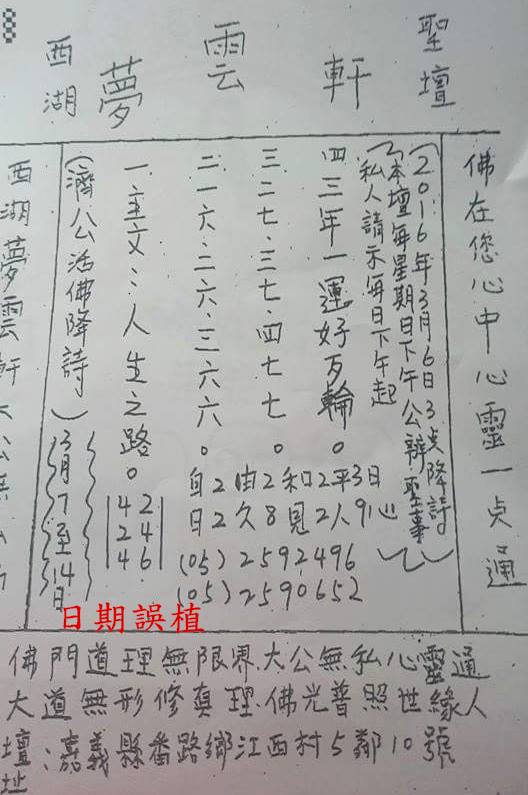 西湖 夢雲軒 聖壇
佛在您心中心靈一点通
(2016年3月6日3点降詩)
(本壇每星期日下午公辦聖事)
私人請示每日下午起
四三年一運好歹輪。
三二七.三七.四七七。
二一六.二六.三六六。
一主文:人生之路。
(濟公活佛降詩)
3月7至14日
西湖夢雲軒大公無私
自2由2和2平3日
日2久8見2人9心
42
24
46
(05)2592496
(05)2590652
日期誤植
佛門道理無限界.大公無私心靈通
大道無形修真理.佛光普照世緣人
壇址:嘉義縣番路鄉江西村5鄰10號